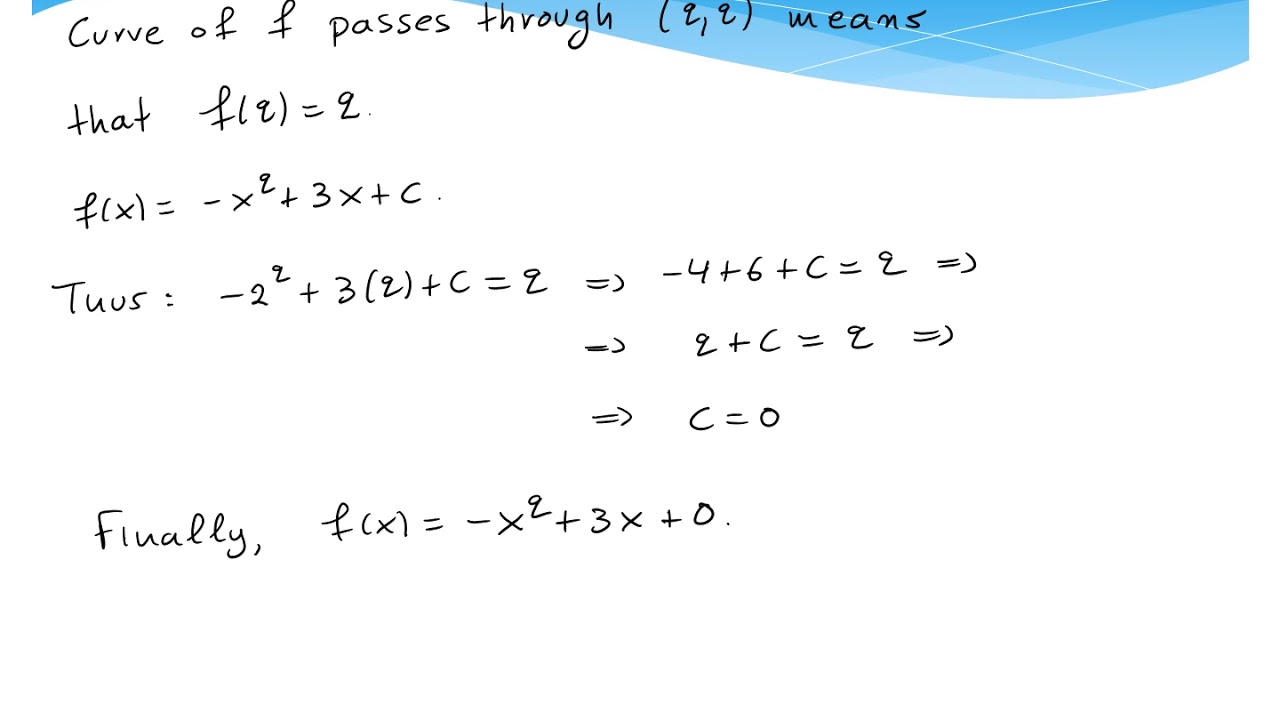 Curve of f passes through (2,2) means
that f(2) = 2.
f(x) = -x² + 3x + C.
Thus: -2² + 3(2) + C = 2 => -4+6+C = 2 =>
=> 2 + C = 2 =>
=> C = 0
Finally, f(x) = -x² + 3x + 0.